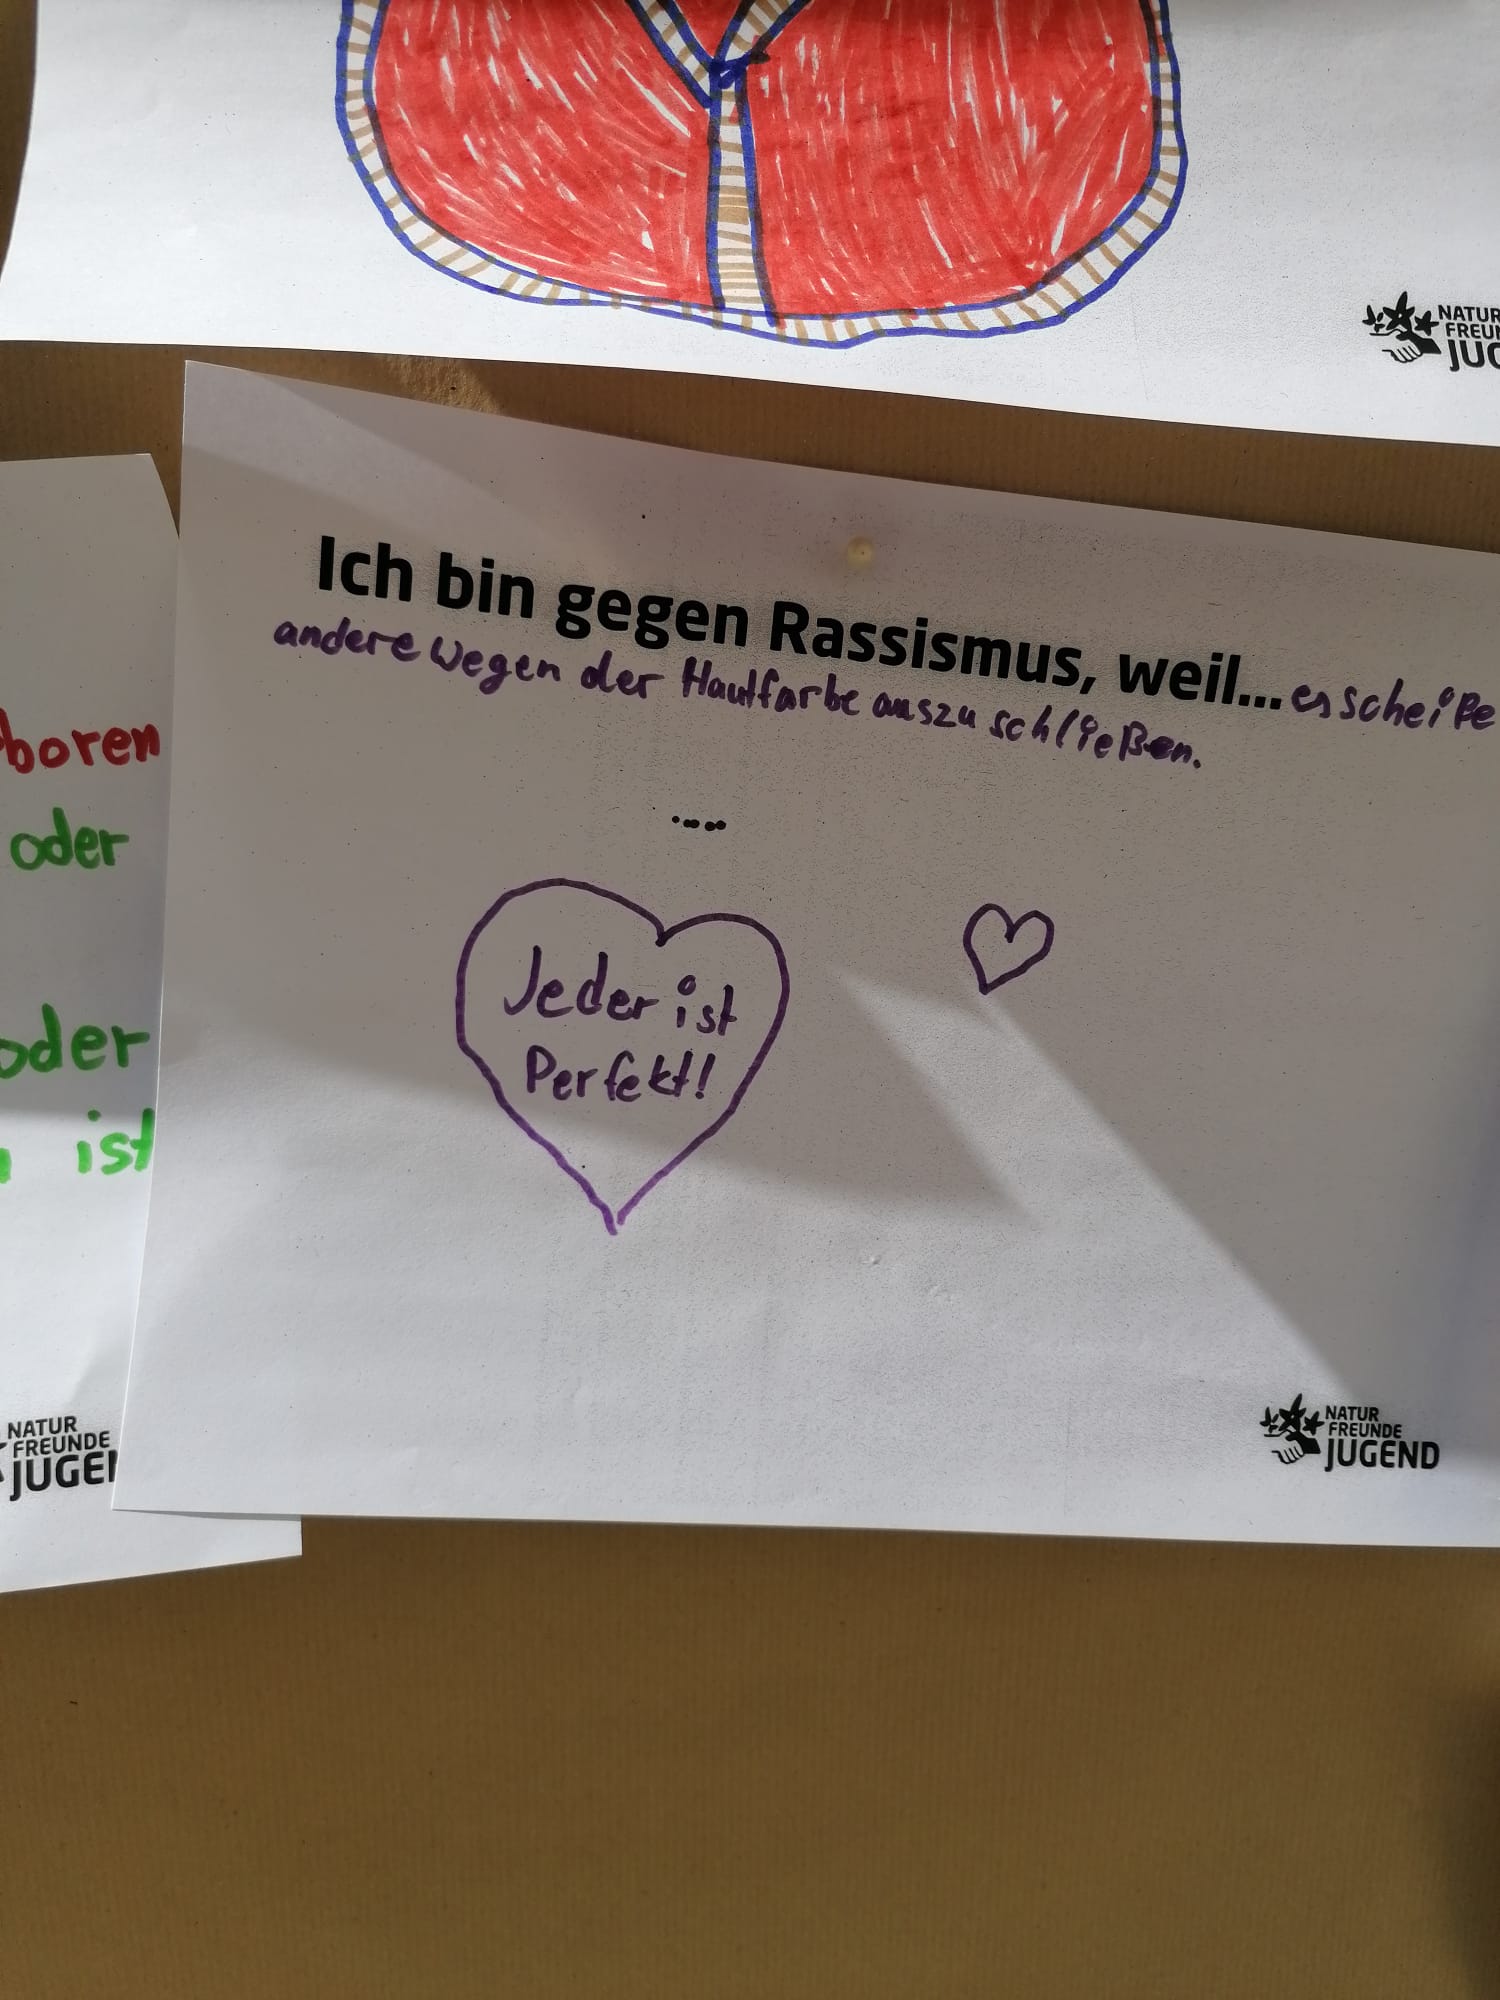 NATUR
FREUN
JUG
Ich bin gegen Rassismus, weil... es scheiße
andere wegen der Hautfarbe auszuschließen.
....
Jeder ist
Perfekt!
NATUR
FREUNDE
JUGEND
boren
oder
oder
ist
NATUR
FREUNDE
JUGEN